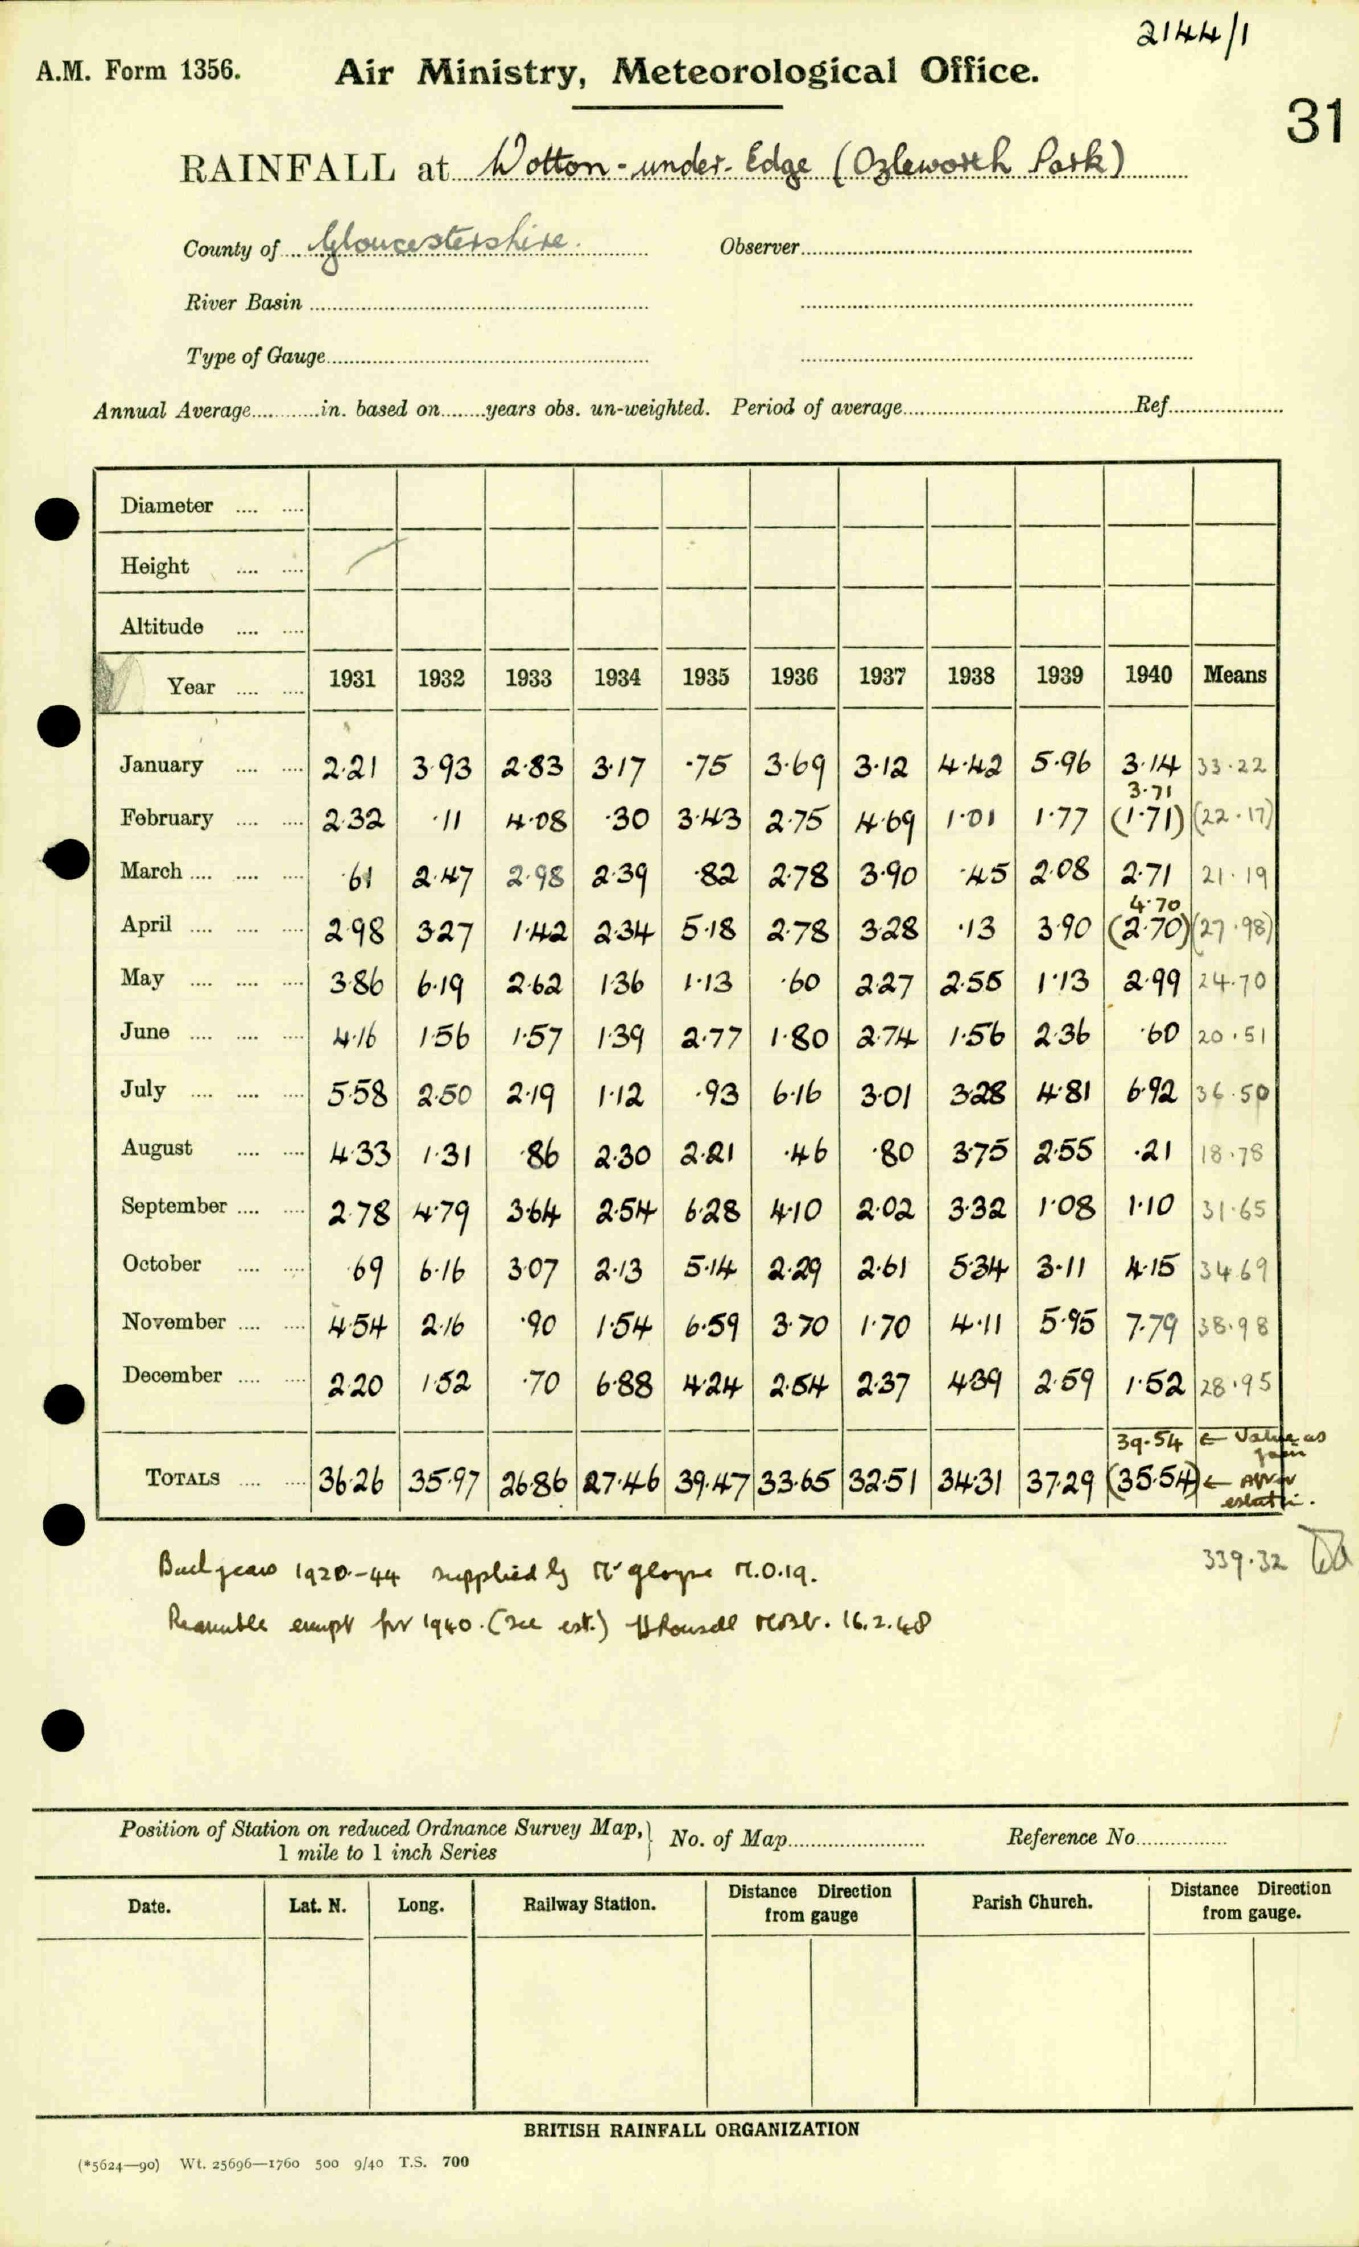 2144/1
A.M. Form 1356. Air Ministry, Meteorological Office.
31
RAINFALL at Wotton-under-Edge (Ozleworth Park)
County of Gloucestershire. Observer
River Basin
Type of Gauge
Annual Average in. based on years obs. un-weighted. Period of average Ref
Diameter
Height
Altitude
Year 1931 1932 1933 1934 1935 1936 1937 1938 1939 1940 Means
January 2.21 3.93 2.83 3.17 .75 3.69 3.12 4.42 5.96 3.14 33.22
3.71
February 2.32 .11 4.08 .30 3.43 2.75 4.69 1.01 1.77 (1.71) (22.17)
March .61 2.47 2.98 2.39 .82 2.78 3.90 .45 2.08 2.71 21.19
4.70
April 2.98 3.27 1.42 2.34 5.18 2.78 3.28 .13 3.90 (2.70) (27.98)
May 3.86 6.19 2.62 1.36 1.13 .60 2.27 2.55 1.13 2.99 24.70
June 4.16 1.56 1.57 1.39 2.77 1.80 2.74 1.56 2.36 .60 20.51
July 5.58 2.50 2.19 1.12 .93 6.16 3.01 3.28 4.81 6.92 36.50
August 4.33 1.31 .86 2.30 2.21 .46 .80 3.75 2.55 .21 18.78
September 2.78 4.79 3.64 2.54 6.28 4.10 2.02 3.32 1.08 1.10 31.65
October .69 6.16 3.07 2.13 5.14 2.29 2.61 5.34 3.11 4.15 34.69
November 4.54 2.16 .90 1.54 6.59 3.70 1.70 4.11 5.95 7.79 38.98
December 2.20 1.52 .70 6.88 4.24 2.54 2.37 4.39 2.59 1.52 28.95
39.54 ← Value as
TOTALS 36.26 35.97 26.86 27.46 39.47 33.65 32.51 34.31 37.29 (35.54) ←
339.32
1920-44 supplied by M.O.19.
for 1940. (see est.) 16.2.48
Position of Station on reduced Ordnance Survey Map, No. of Map Reference No
1 mile to 1 inch Series
Date. Lat. N. Long. Railway Station. Distance Direction from gauge Parish Church. Distance Direction from gauge.
BRITISH RAINFALL ORGANIZATION
(*5624—90) Wt. 25696—1760 500 9/40 T.S. 700